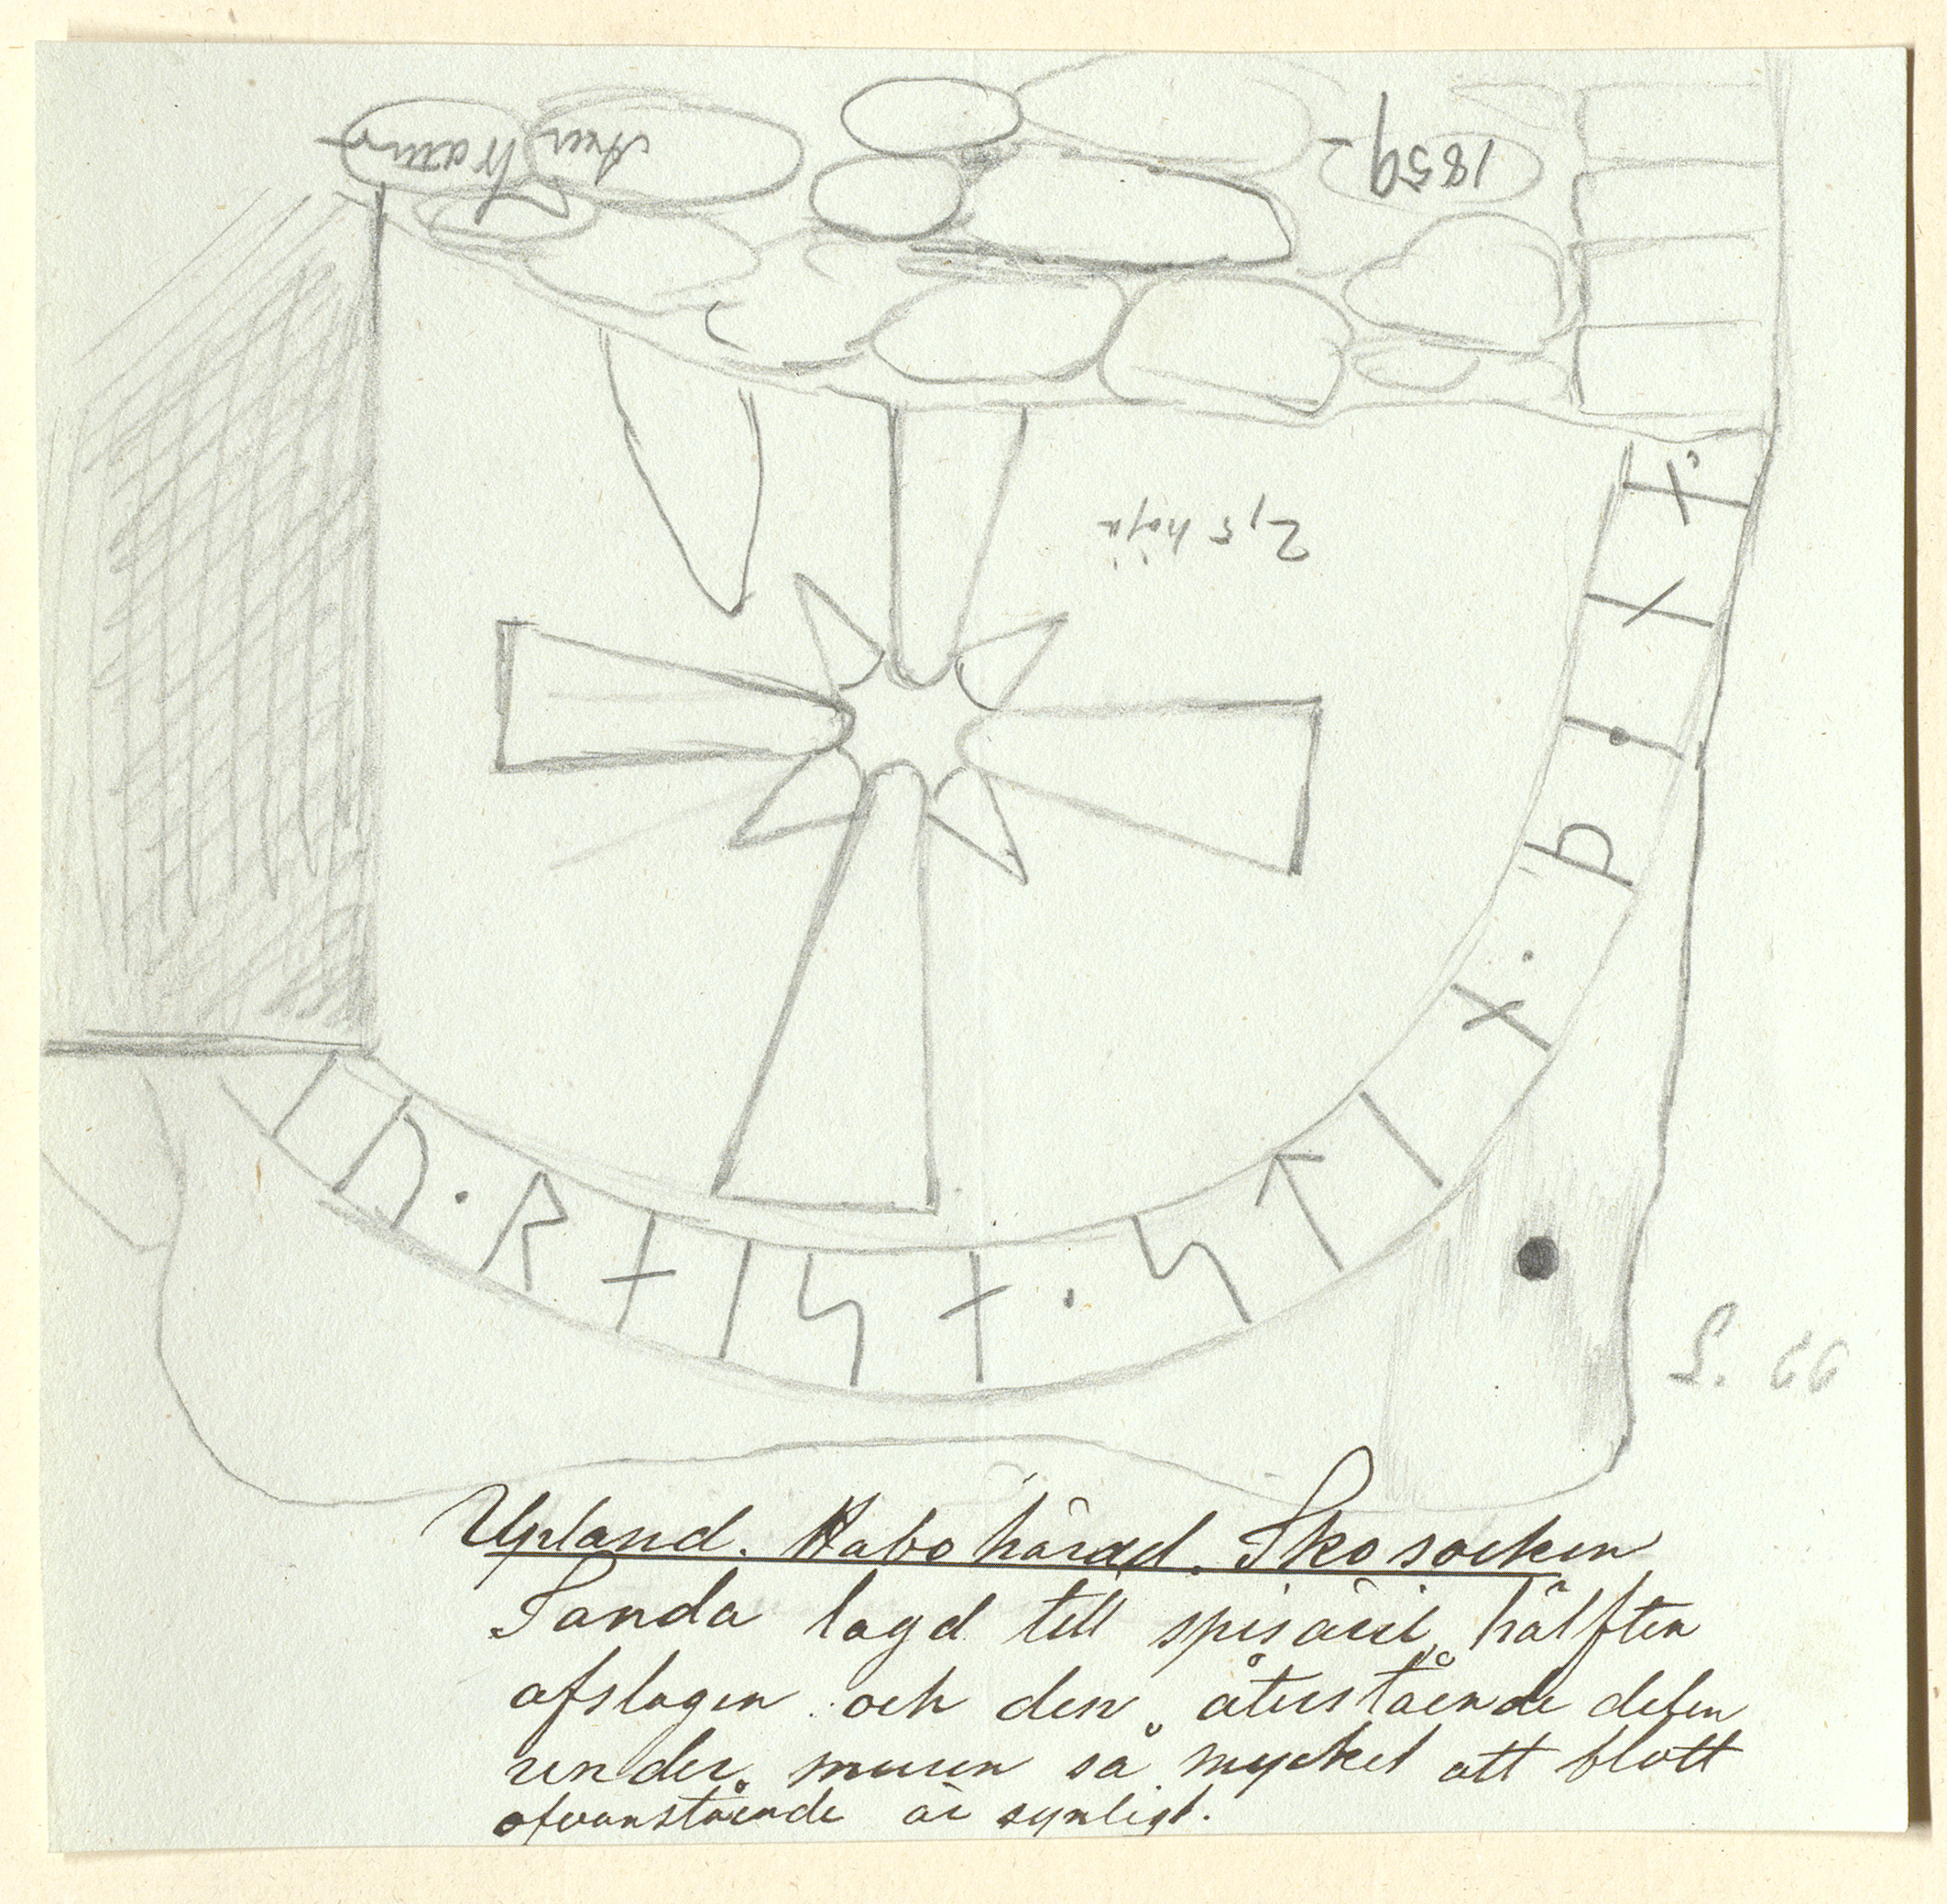 1859
ᛁᚢ · ᚱᛅᛁᛋᛅ · ᛋᛏᛁᚾ · ᚦᛂᚾᛅ
66
Upland. Habo härad. Sko socken
Sanda lagd till spisäril, hälften
afslagen och den återstående delen
under muren så mycket att blott
ofvanstående är synligt.